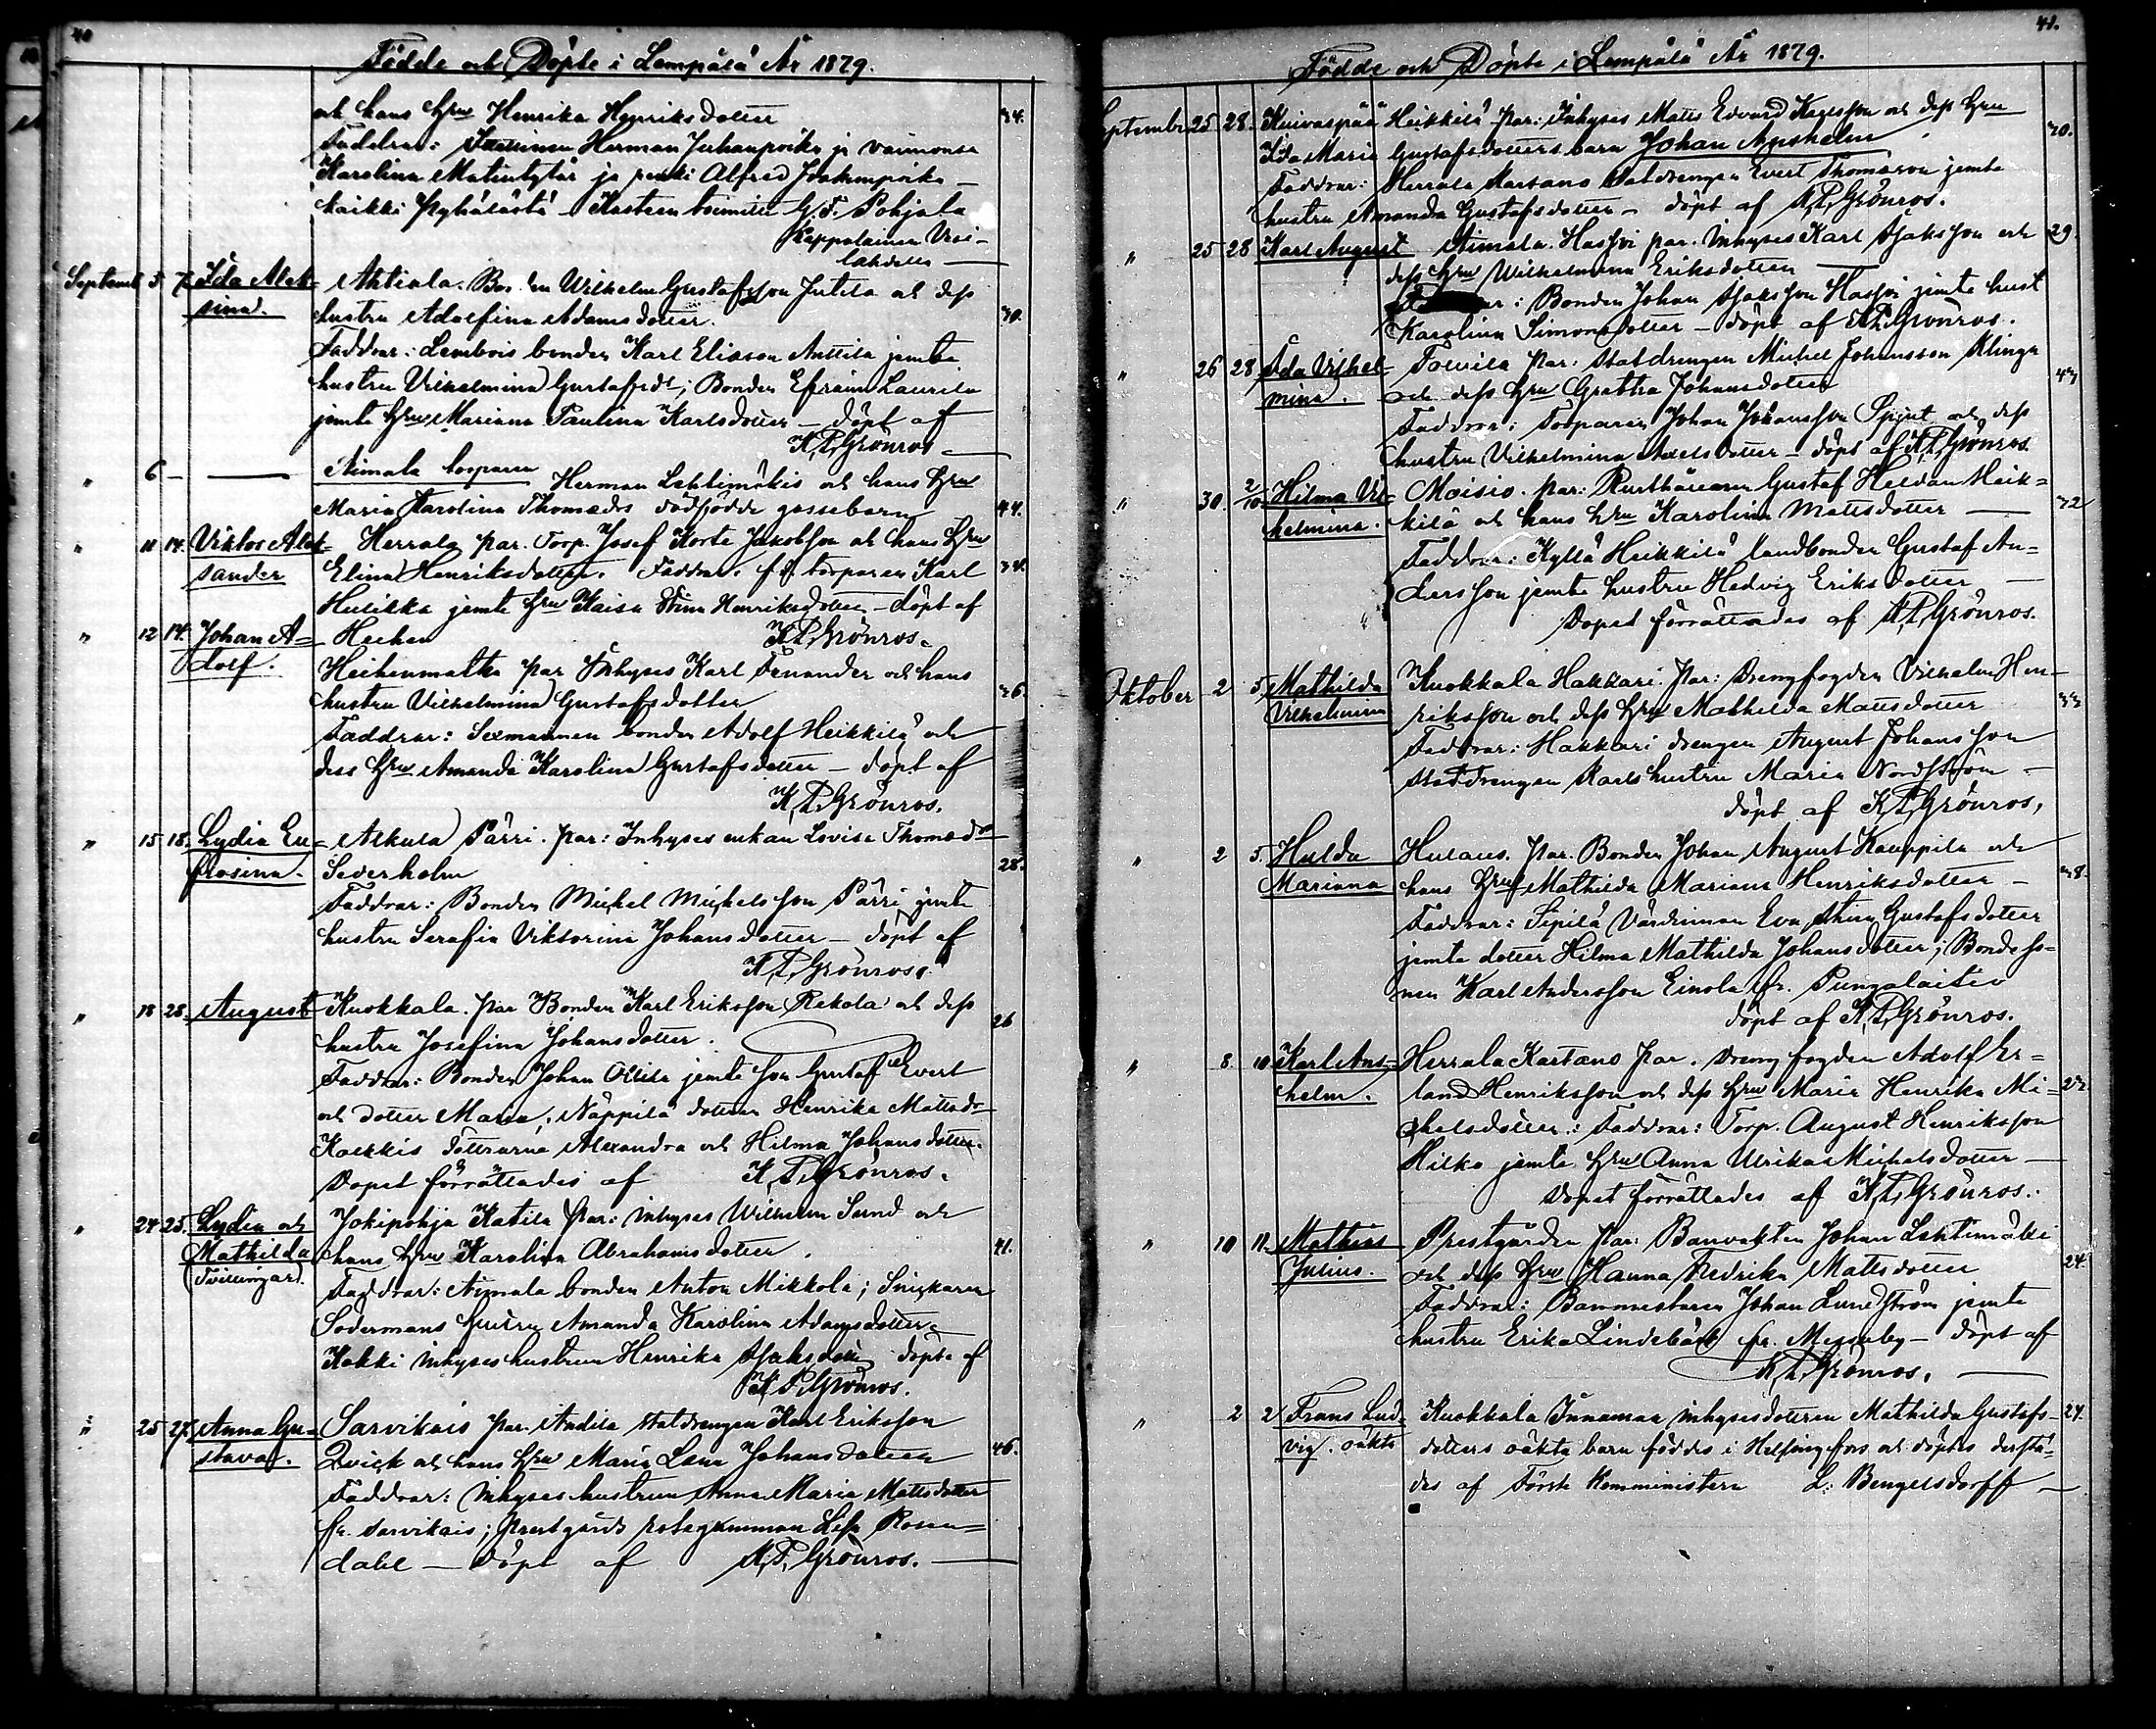 40
Födde och Döpte i Lempälä År 1879.
och hans hru Henrika Henriksdotter 34.
Faddrar: Herman Juhanpoika ja vaimonsa
Karolina Matintytär ja renki Alfred Joakimpoika —
kaikki Pyhäjästä — Kasteen toimitti G. F. Pohjala
Kappalainen Vesi-
lahdella —
Septemb 5 7. Ida Alek- Ahtiala. Bonden Wilhelm Gustafsson Jutila och dess
sina. hustru Adolfina Adamsdotter. 30.
Faddrar: Lembois bonden Karl Eliasson Anttila jemte
hustru Vilhelmina Gustafsdr; Bonden Efraim Laurila
jemte hru Mariana Paulina Karlsdotter — döpt af
K. P. Grönros —
" 6 — — Aimala torparen Herman Lehtimäkis och hans hru
Maria Karolina Thomædr dödfödde gossebarn 44.
" 11 14. Viktor Alek- Herrala par. Torp. Josef Korte Jakobsson och hans hru
sander Elina Henriksdotter. Faddrar: f.d. torparen Karl 34.
Hulikka jemte hru Kaisa Stina Henriksdotter — döpt af
" 12 14. Johan A- Heiken K. P. Grönros.
dolf. Heikenmatka par Inhyses Karl Fenander och hans
hustru Vilhelmina Gustafsdotter 36.
Faddrar: Sexmannen bonden Adolf Heikkilä och
dess hru Amanda Karolina Gustafsdotter — döpt af
K. P. Grönros.
" 15 18. Lydia Eu- Alkula Pärri. par: Inhyses enkan Lovisa Thomædr
frosina. Sederholm 28.
Faddrar: Bonden Michel Michelsson Pärri jemte
hustru Serafia Viktorina Johansdotter — döpt af
K. P. Grönros.
" 18 28. August Kuokkala. par Bonden Karl Eriksson Rekola och dess 26
hustru Josefina Johansdotter.
Faddrar: Bonden Johan Ollila jemte son Gustaf Evert
och dotter Maria; Näppilä dottern Henrika Mattsdr
döttrarna Alexandra och Hilma Johansdotter.
Dopet förrättades af K. P. Grönros.
" 24 25. Lydia och Jokipohja Katila par: inhyses Wilhelm Sund och
Mathilda hans hru Karolina Abrahamsdotter. 41.
(Tvillingar). Faddrar: Aimala bonden Anton Mikkola; Snickaren
Södermans hustru Amanda Karolina Adamsdotter.
Kakki inhyseshustrun Henrika Isaksdotter döpte af
K. P. Grönros.
" 25 27. Anna Gu- Sarvikais par. Andila statdrengen Karl Eriksson
stava. Qvick och hans hru Maria Lena Johansdotter 46.
Faddrar: inhyseshustrun Anna Maria Mattsdotter
fr. Sarvikais; prestgårds rotegumman Lisa Rosen-
dahl — Döpt af K. P. Grönros. —
41.
Födde och Döpte i Lempälä År 1879.
September 25 28. Kuivaspää Heikkilä par: Inhyses Matts Edvard Karlsson och dess hru
Ida Maria Gustafsdotters barn Johan Anshelm 30.
Faddrar: Herrala Kartano Statdrengen Evert Thomasson jemte
hustru Amanda Gustafsdotter — döpt af K. P. Grönros.
" 25 28 Karl August Aimala. Hassoi par. inhyses Karl Isaksson och 29.
dess hru Wilhelmina Eriksdotter
Faddrar: Bonden Johan Isaksson Hassoi jemte hust
Karolina Simonsdotter — döpt af K. P. Grönros.
" 26 28 Ida Vilhel- par: Statdrengen Michel Johansson Klinga
mina. och dess hru Gretha Johansdotter
Faddrar: Torparen Johan Johansson och dess
hustru Vilhelmina Axelsdotter — döpt af K. P. Grönros.
" 30. 2/10 Hilma Vil- Moisio. par: Gustaf Herman Heik-
helmina. kilä och hans hru Karolina Mattsdotter — 32
Faddrar: Kyllä Heikkilä landbonden Gustaf An-
dersson jemte hustru Hedvig Eriksdotter —
Dopet förrättades af K. P. Grönros.
Oktober 2 5. Mathilda Kuokkala Hakkari. par: Drengfogden Vilhelm Hen-
Vilhelmina riksson och dess hru Mathilda Mattsdotter 33
Faddrar: Hakkari drengen August Johansson
statdrengen Karls hustru Maria Nordström —
döpt af K. P. Grönros,
" 2 5. Hulda Hulaus. par. Bonden Johan August Kauppila och
Mariana hans hru Mathilda Mariana Henriksdotter — 38.
Faddrar: Sipilä Värdinnan Eva Stina Gustafsdotter
jemte dotter Hilma Mathilda Johansdotter; Bondeso-
nen Karl Andersson Einola fr. Pungalaitio
döpt af K. P. Grönros.
" 8. 10 Karl Ans- Herrala Kartano par. Drengfogden Adolf Er-
helm. land Henriksson och dess hru Maria Henrika Mi- 23
chelsdotter.: Faddrar: Torp. August Henriksson
Hilko jemte hru Anna Ulrika Michelsdotter —
Dopet förrättades af K. P. Grönros.
" 10 11. Mathias Prestgården par: Banvakten Johan Lehtimäki
Julius. och dess hru Hanna Fredrika Mattsdotter 24.
Faddrar: Banmästaren Johan Lundström jemte
hustru Erika Lindebäck fr. Messuby — döpt af
K. P. Grönros. —
" 2 2 Frans Lud- Kuokkala Innamaa inhysesdottern Mathilda Gustafs- 24.
vig. oäkta dotters oäkta barn föddes i Helsingfors och döptes derstä-
des af Förste Komministern L. Bengelsdorff —